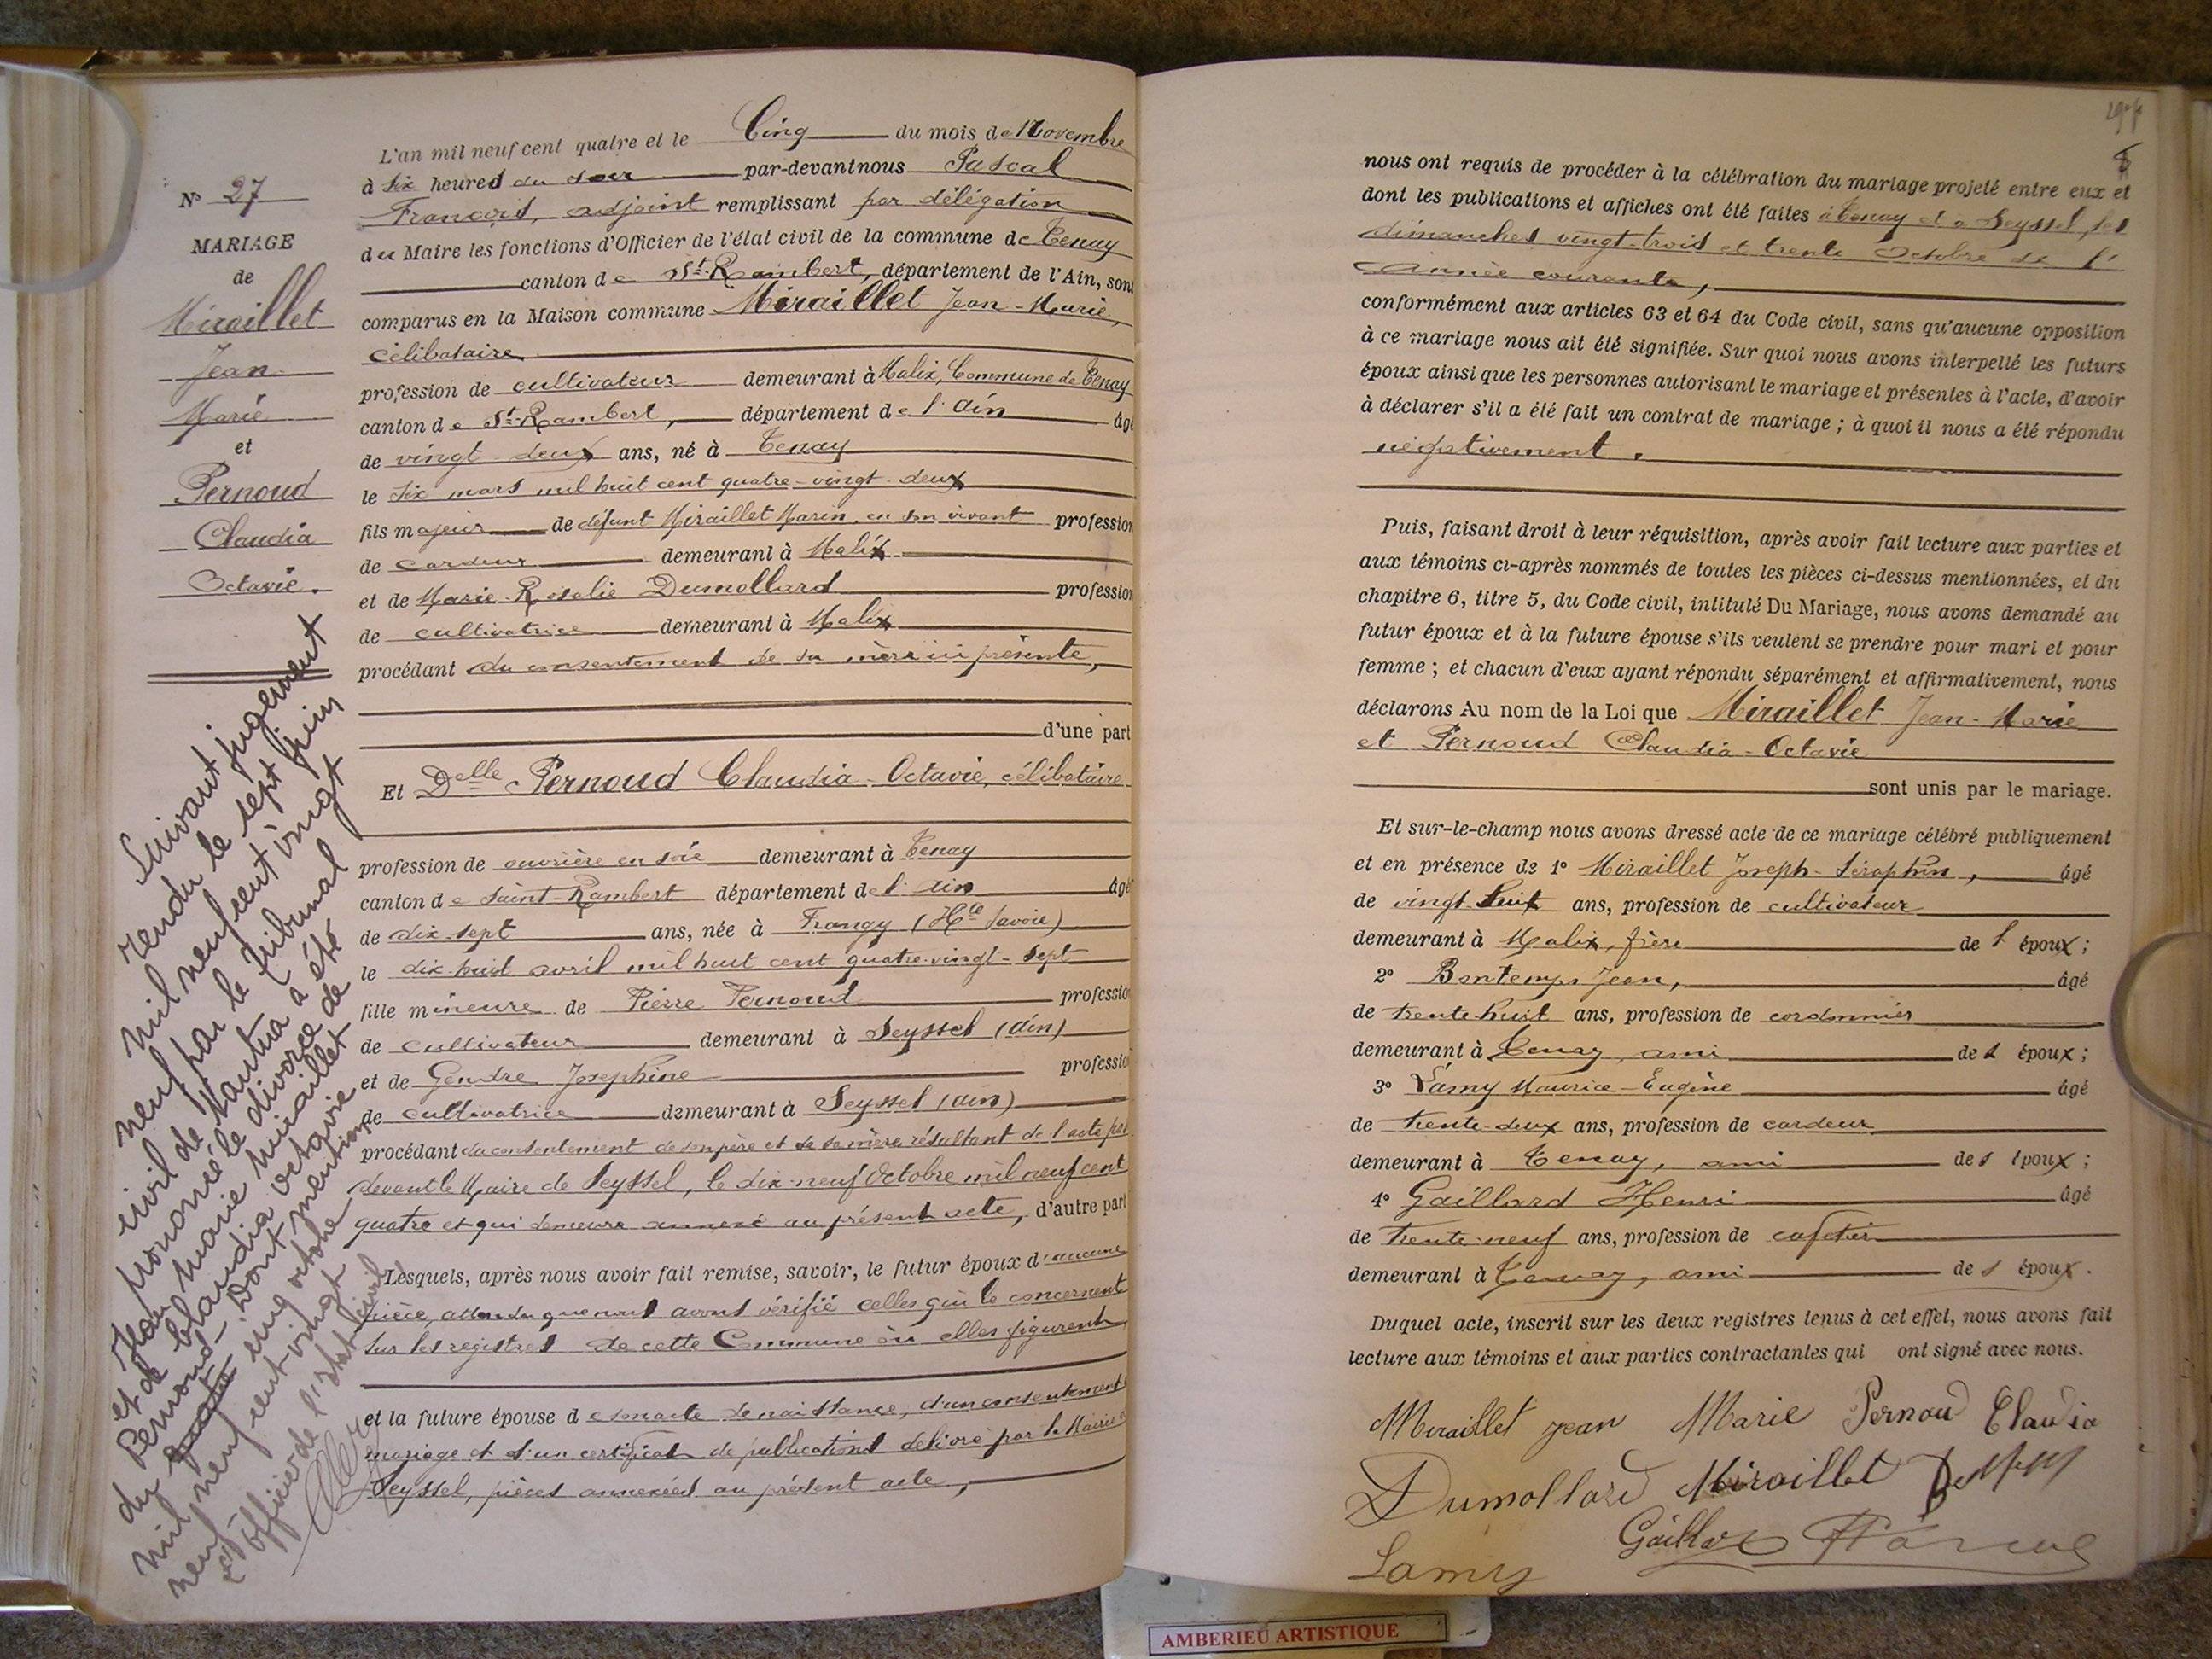 L'an mil neuf cent quatre et le Cinq du mois de Novembre
à six heures du soir par-devant nous Pascal
François, adjoint remplissant par délégation
du Maire les fonctions d'Officier de l'état civil de la commune de Tenay
canton de St-Rambert, département de l'Ain, sont
comparus en la Maison commune Miraillet Jean-Marie,
célibataire
profession de cultivateur demeurant à Malix, Commune de Tenay
canton de St-Rambert, département de l'Ain âgé
de vingt deux ans, né à Tenay
le six mars mil huit cent quatre-vingt-deux
fils majeur de défunt Miraillet Marin, en son vivant profession
de cardeur demeurant à Malix
et de Marie-Rosalie Dumollard profession
de cultivatrice demeurant à Malix
procédant du consentement de sa mère ici présente,
d'une part
Et Delle Pernoud Claudia-Octavie, célibataire
profession de ouvrière en soie demeurant à Tenay
canton de Saint-Rambert département de l'Ain âgé
de dix-sept ans, née à Frangy (Hte Savoie)
le dix-huit avril mil huit cent quatre-vingt-sept
fille mineure de Pierre Pernoud profession
de cultivateur demeurant à Seyssel (Ain)
et de Gendre Joséphine profession
de cultivatrice demeurant à Seyssel (Ain)
procédant du consentement de son père et de sa mère résultant de l'acte
devant le Maire de Seyssel, le dix-neuf Octobre mil neuf cent
quatre et qui demeure annexé au présent acte, d'autre part
Lesquels, après nous avoir fait remise, savoir, le futur époux d'aucune
pièce, attendu que nous avons vérifié celles qui le concernent
sur les registres de cette Commune où elles figurent
et la future épouse de son acte de naissance, d'un consentement
mariage et d'un certificat de publications délivré par le Maire
Seyssel, pièces annexées au présent acte,
No 27
MARIAGE
de
Miraillet
Jean
Marie
et
Pernoud
Claudia
Octavie.
Suivant jugement
rendu le sept juin
mil neuf cent vingt
neuf par le tribunal
civil de Nantua a été
prononcé le divorce de
Jean Marie Miraillet
et de Claudia Octavie
Pernoud - Dont mention
du cinq octobre
mil neuf cent vingt
neuf
L'officier de l'état civil
nous ont requis de procéder à la célébration du mariage projeté entre eux et
dont les publications et affiches ont été faites à Tenay et à Seyssel, les
dimanches vingt-trois et trente Octobre de l'
année courante,
conformément aux articles 63 et 64 du Code civil, sans qu'aucune opposition
à ce mariage nous ait été signifiée. Sur quoi nous avons interpellé les futurs
époux ainsi que les personnes autorisant le mariage et présentes à l'acte, d'avoir
à déclarer s'il a été fait un contrat de mariage ; à quoi il nous a été répondu
négativement.
Puis, faisant droit à leur réquisition, après avoir fait lecture aux parties et
aux témoins ci-après nommés de toutes les pièces ci-dessus mentionnées, et du
chapitre 6, titre 5, du Code civil, intitulé Du Mariage, nous avons demandé au
futur époux et à la future épouse s'ils veulent se prendre pour mari et pour
femme ; et chacun d'eux ayant répondu séparément et affirmativement, nous
déclarons Au nom de la Loi que Miraillet Jean-Marie
et Pernoud Claudia-Octavie
sont unis par le mariage.
Et sur-le-champ nous avons dressé acte de ce mariage célébré publiquement
et en présence de 1° Miraillet Joseph-Séraphin, âgé
de vingt huit ans, profession de cultivateur
demeurant à Malix, frère de l'époux ;
2° Bontemps Jean, âgé
de trente-huit ans, profession de cordonnier
demeurant à Tenay, ami des époux ;
3° Lamy Maurice-Eugène âgé
de trente-deux ans, profession de cardeur
demeurant à Tenay, ami des époux ;
4° Gaillard Henri âgé
de trente-neuf ans, profession de cafetier
demeurant à Tenay, ami des époux.
Duquel acte, inscrit sur les deux registres tenus à cet effet, nous avons fait
lecture aux témoins et aux parties contractantes qui ont signé avec nous.
Miraillet jean Marie Pernoud Claudia
Dumollard Miraillet
Gaillard
Lamy
AMBERIEU ARTISTIQUE